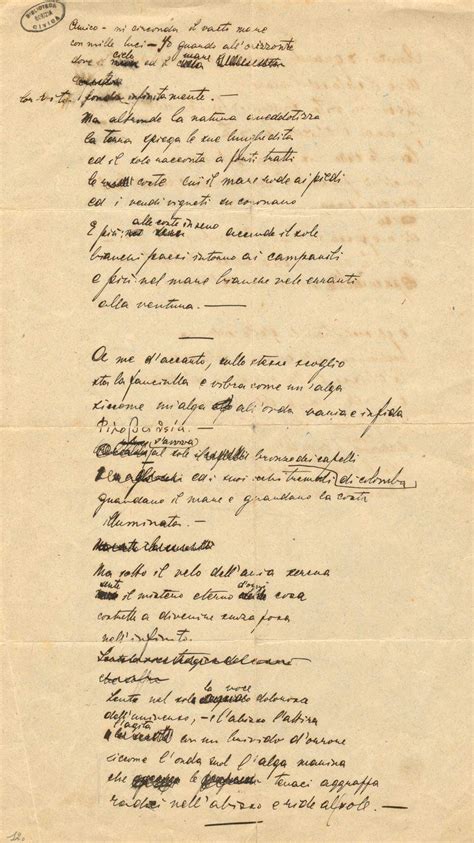 BIBLIOTECA CIVICA
Amico - mi circonda il vasto mare
con mille luci - io guardo all'orizzonte
dove il cielo ed il mare
lor vita fondon infinitamente. —
Ma altrove la natura aneddotizza
la terra spiega le sue lunghe dita
ed il sole racconta a forti tratti
le coste cui il mare rode ai piedi
ed i verdi vigneti su coronano
E più: alle coste in seno accende il sole
bianchi paesi intorno ai campanili
e più nel mare bianche vele erranti
alla ventura. —
A me d'accanto, sullo stesso scoglio
sta la fanciulla e vibra come un'alga
siccome un'alga all'onda varia e infida
Φιλοβαθείη. —
s'avviva al sole il bronzo dei capelli
ed i suoi occhi tremuli di colomba
guardano il mare e guardano la costa
illuminata. —
Ma sotto il velo dell'aria serena
sente il mistero eterno d'ogni cosa
costretta a divenire senza posa
nell'infinito.
Sente nel sol la voce dolorosa
dell'universo, - e l'abisso l'attira
l'agita con un brivido d'orrore
siccome l'onda suol l'alga marina
che le tenaci aggrappa
radici nell'abisso e ride al sole. —
12.